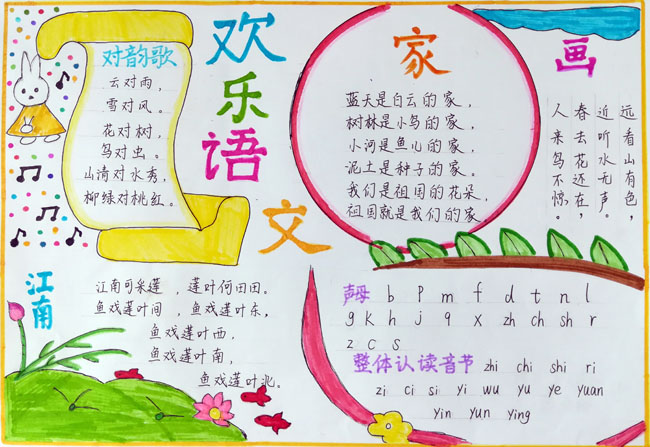 欢乐语文
对韵歌
云对雨，
雪对风。
花对树，
鸟对虫。
山清对水秀，
柳绿对桃红。
家
蓝天是白云的家，
树林是小鸟的家，
小河是鱼儿的家，
泥土是种子的家。
我们是祖国的花朵，
祖国就是我们的家
画
远看山有色，
近听水无声。
春去花还在，
人来鸟不惊。
江南
江南可采莲，莲叶何田田。
鱼戏莲叶间，鱼戏莲叶东，
鱼戏莲叶西，
鱼戏莲叶南，
鱼戏莲叶北。
声母 b p m f d t n l
g k h j q x zh ch sh r
z c s
整体认读音节 zhi chi shi ri
zi ci si yi wu yu ye yuan
yin yun ying